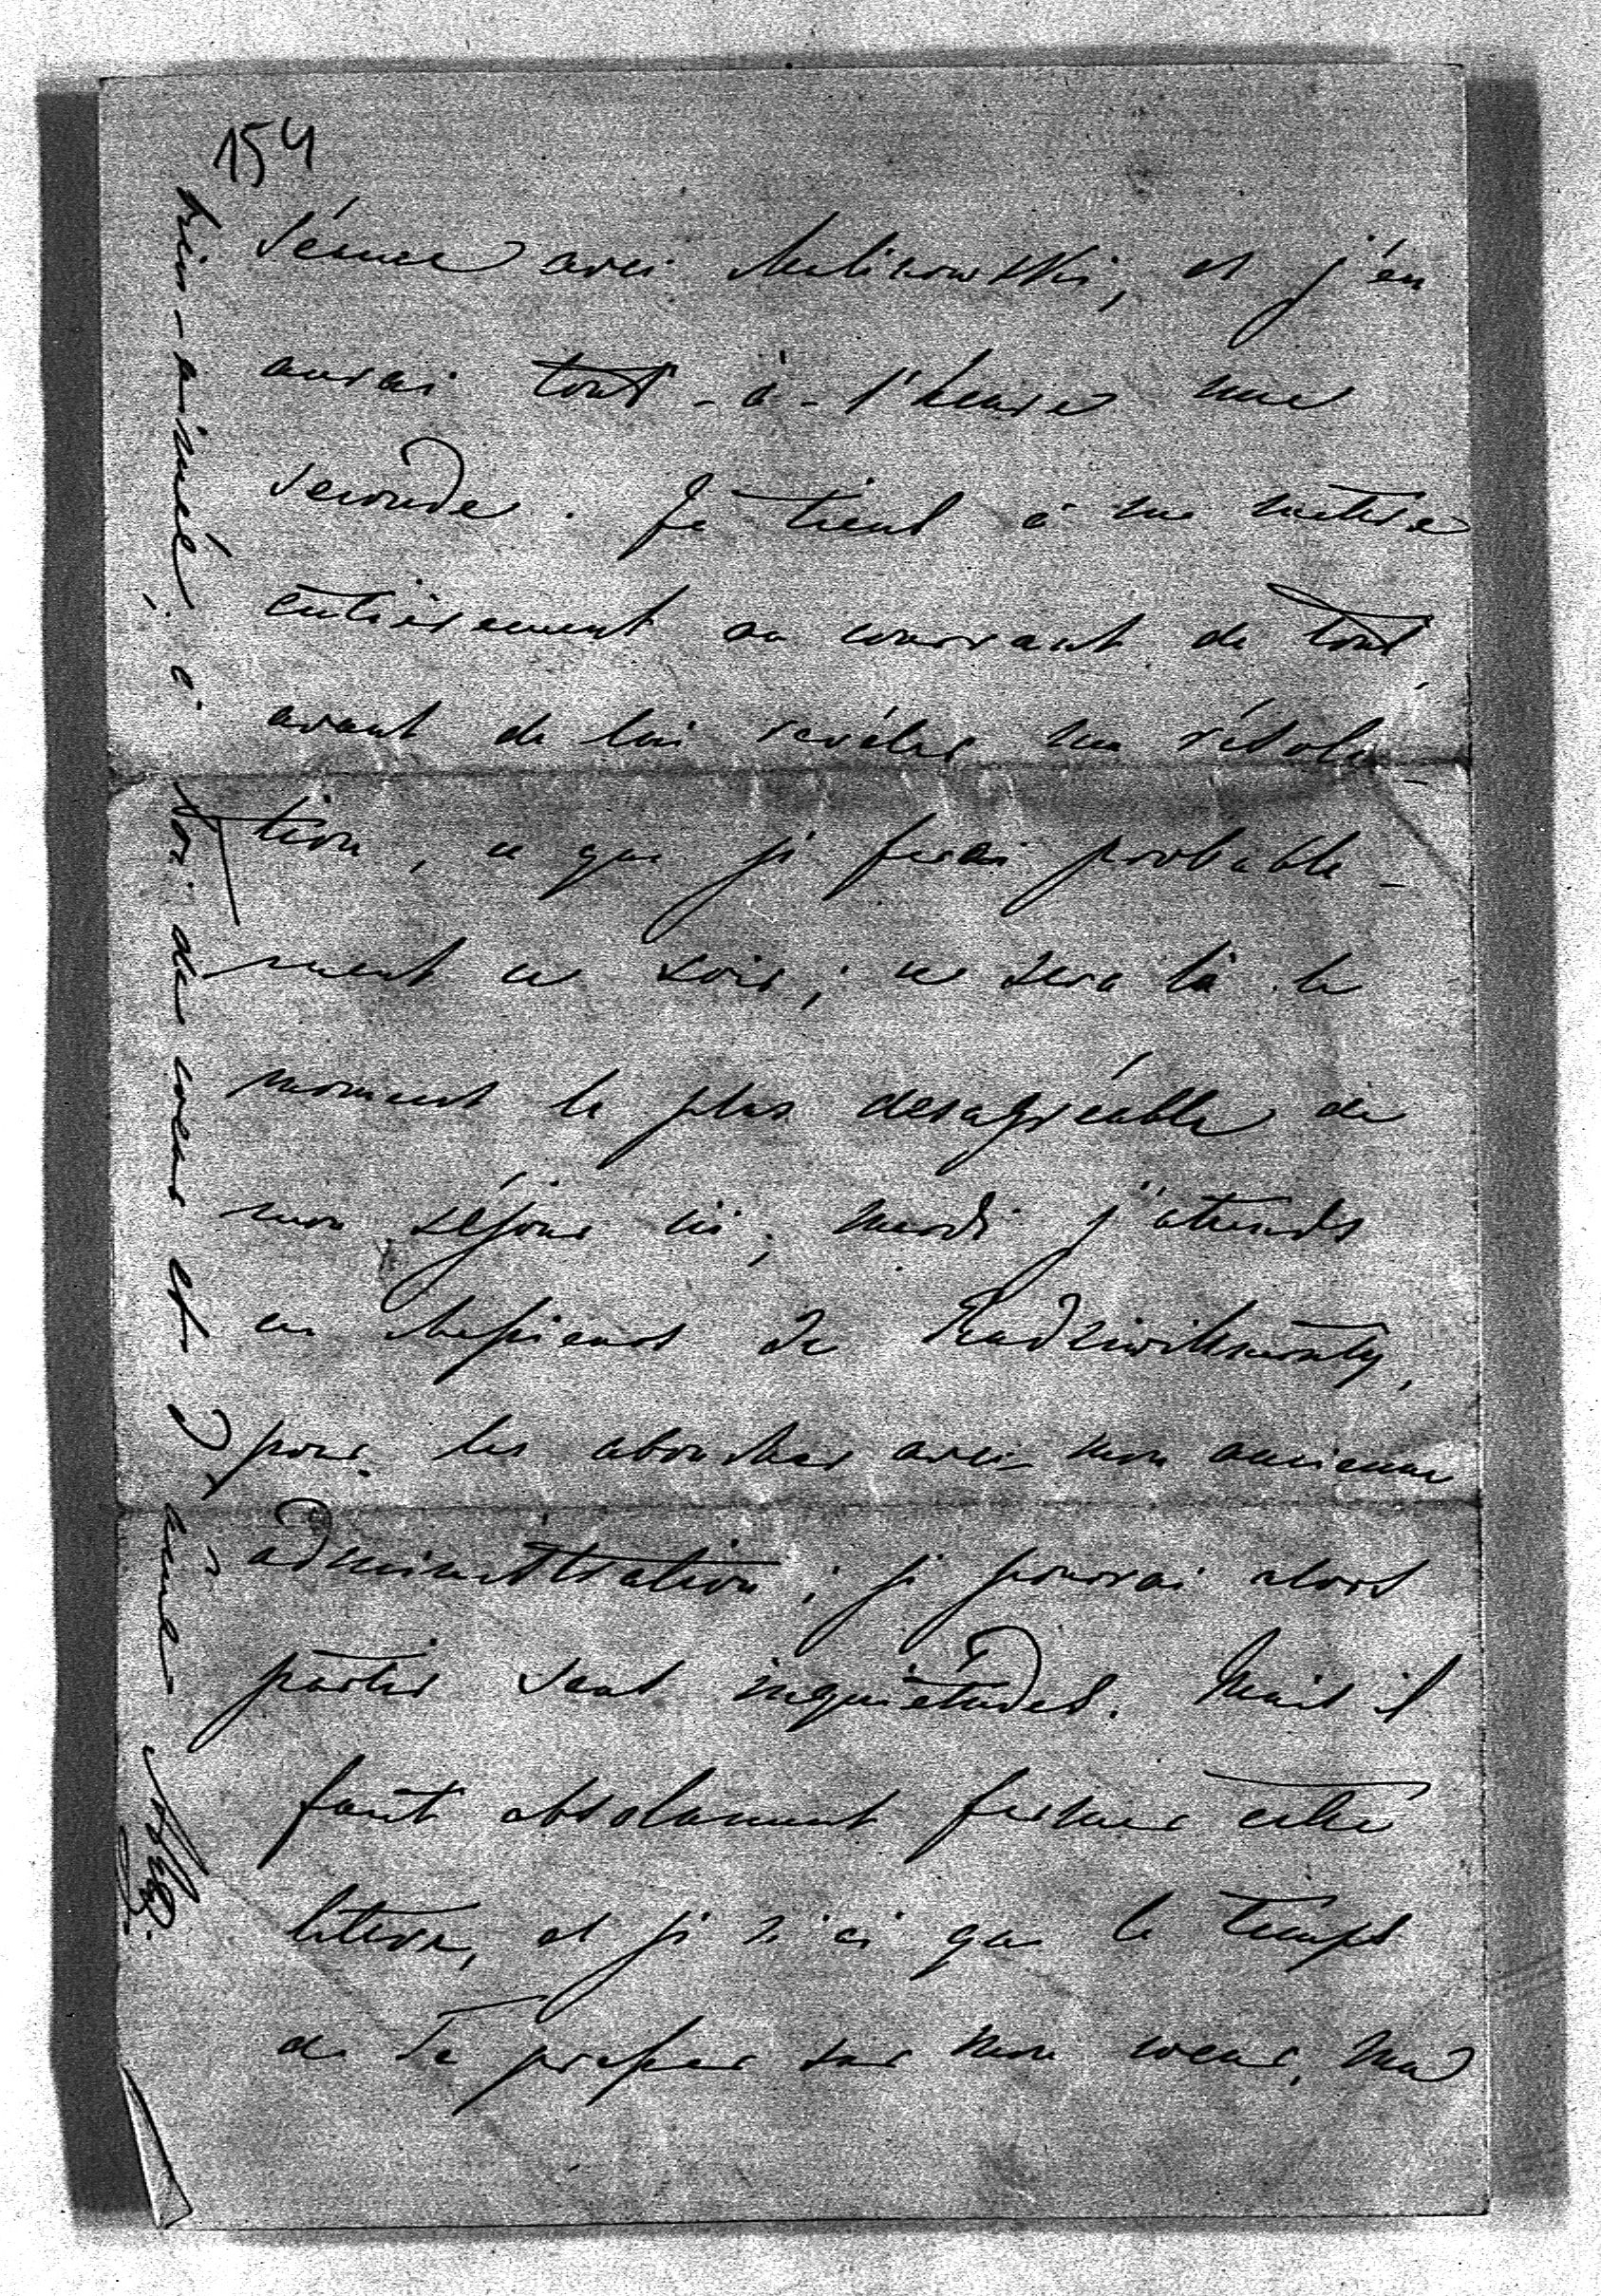 154
séance avec Malinowski, et j'en
aurai tout-à-l'heure une
seconde. Je tiens à me mettre
entièrement au courant de tout
avant de lui révéler ma résolu-
tion, ce que je ferai probable-
ment ce soir; ce sera là le
moment le plus desagréable de
mon séjour ici; mardi j'attends
de
pour les aboucher avec mon ancienne
administration; je pourrai alors
partir sans inquiétudes. Mais il
faut absolument fermer cette
lettre, et je n'ai que le temps
de Te presser sur mon coeur, ma
bien-aimée; à
Toi de coeur et d'âme